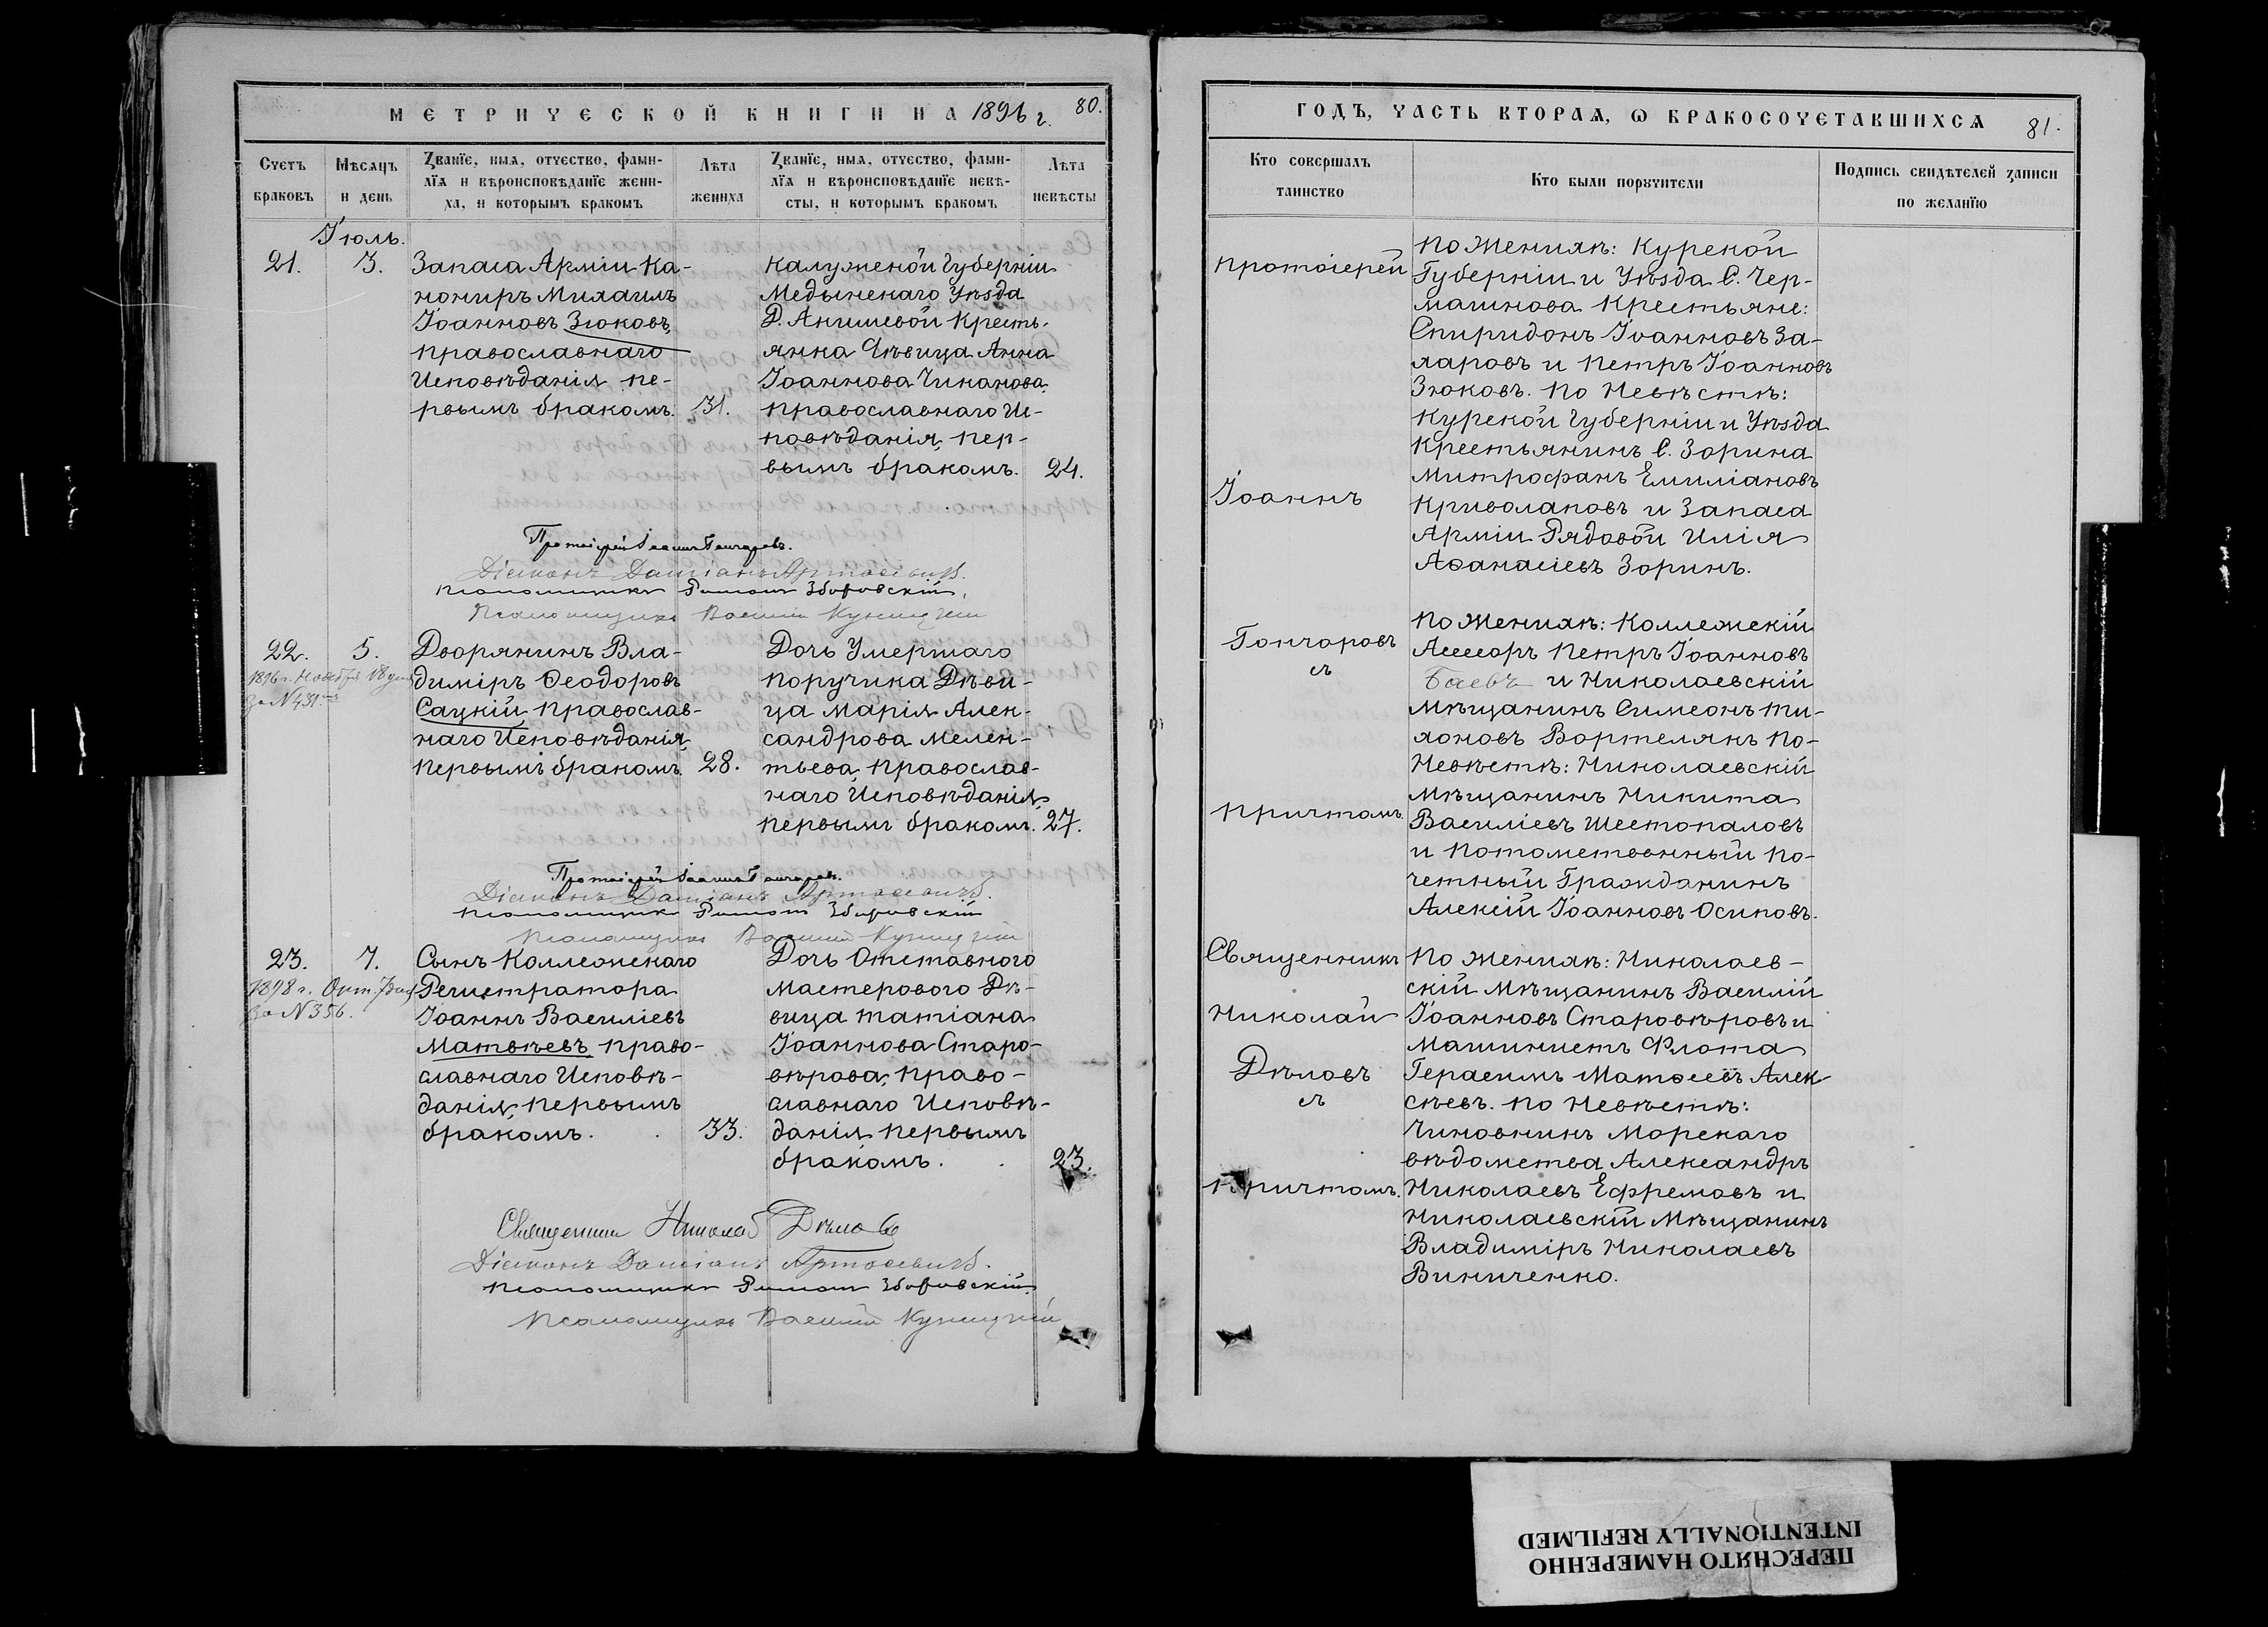 МЕТРИЧЕСКОЙ КНИГИ НА 1896 г. 80.
Счетъ браковъ
Мѣсяцъ и день
Званїе, имя, отчество, фами-
лїя и вѣроисповѣданїе жени-
ха, и которымъ бракомъ
Лѣта жениха
Званїе, имя, отчество, фами-
лїя и вѣроисповѣданїе невѣ-
сты, и которымъ бракомъ
Лѣта невѣсты
Іюль.
21. 3.
Запаса Арміи Ка-
нониръ Михаилъ
Іоанновъ Зюковъ,
православнаго
Исповѣданія пе-
рвымъ бракомъ. 31.
Калужской Губерніи
Медынскаго Уѣзда
Д. Акишевой Кресть-
янка Дѣвица Анна
Іоаннова Чиканова,
православнаго Ис-
повѣданія, пер-
вымъ бракомъ. 24.
Протоіерей Іоаннъ Гончаровъ.
Діаконъ Даміанъ Артосевичъ.
Псаломщикъ Филиппъ Зборовскій.
Псаломщикъ Василій Куницкій
22. 5.
1896 г. Ноября 18 дня
за № 431
Дворянинъ Вла-
диміръ Ѳеодоровъ
Сацкій, православ-
наго Исповѣданія,
первымъ бракомъ. 28.
Дочь Умершаго
поручика Дѣви-
ца Марія Алек-
сандрова Мелен-
тьева, православ-
наго Исповѣданія,
первымъ бракомъ. 27.
Протоіерей Іоаннъ Гончаровъ.
Діаконъ Даміанъ Артосевичъ.
Псаломщикъ Филиппъ Зборовскій
Псаломщикъ Василій Куницкій
23. 7.
1898 г. Окт. 7 дня
за № 356.
Сынъ Коллежскаго
Регистратора
Іоаннъ Василіевъ
Матвѣевъ, право-
славнаго Исповѣ-
данія, первымъ
бракомъ. 33.
Дочь Отставного
мастерового Дѣ-
вица Татіана
Іоаннова Старо-
вѣрова, право-
славнаго Исповѣ-
данія первымъ
бракомъ. 23.
Священникъ Николай Дѣловъ
Діаконъ Даміанъ Артосевичъ.
Псаломщикъ Филиппъ Зборовскій.
Псаломщикъ Василій Куницкій
ГОДЪ, ЧАСТЬ ВТОРАЯ, Ѡ БРАКОСОЧЕТАВШИХСЯ 81.
Кто совершалъ
таинство
Кто были порꙋчители
Подпись свидѣтелей записи
по желанїю
Протоіерей
Іоаннъ
Гончаровъ
съ
Причтомъ.
По Женихѣ: Курской
Губерніи и Уѣзда С. Чер-
машнова Крестьяне:
Спиридонъ Іоанновъ За-
харовъ и Петръ Іоанновъ
Зюковъ. По Невѣстѣ:
Курской Губерніи и Уѣзда
Крестьянинъ С. Зорина
Митрофанъ Емиліановъ
Криволаповъ и Запаса
Арміи Рядовой Илія
Аѳанасіевъ Зоринъ.
По Женихѣ: Коллежскій
Ассесоръ Петръ Іоанновъ
Баевъ и Николаевскій
Мѣщанинъ Симеонъ Ти-
хоновъ Вортелякъ По-
Невѣстѣ: Николаевскій
Мѣщанинъ Никита
Василіевъ Шестопаловъ
и Потомственный По-
четный Гражданинъ
Алексій Іоанновъ Осиповъ.
Священникъ
Николай
Дѣловъ
съ
Причтомъ.
По Женихѣ: Николаев-
скій Мѣщанинъ Василій
Іоанновъ Старовѣровъ и
Машинистъ Флота
Герасимъ Матѳеевъ Алек-
сѣевъ. По Невѣстѣ:
Чиновникъ Морскаго
вѣдомства Александръ
Николаевъ Ефремовъ и
Николаевскій Мѣщанинъ
Владиміръ Николаевъ
Виниченко.
ПЕРЕСНЯТО НАМЕРЕННО
INTENTIONALLY REFILMED